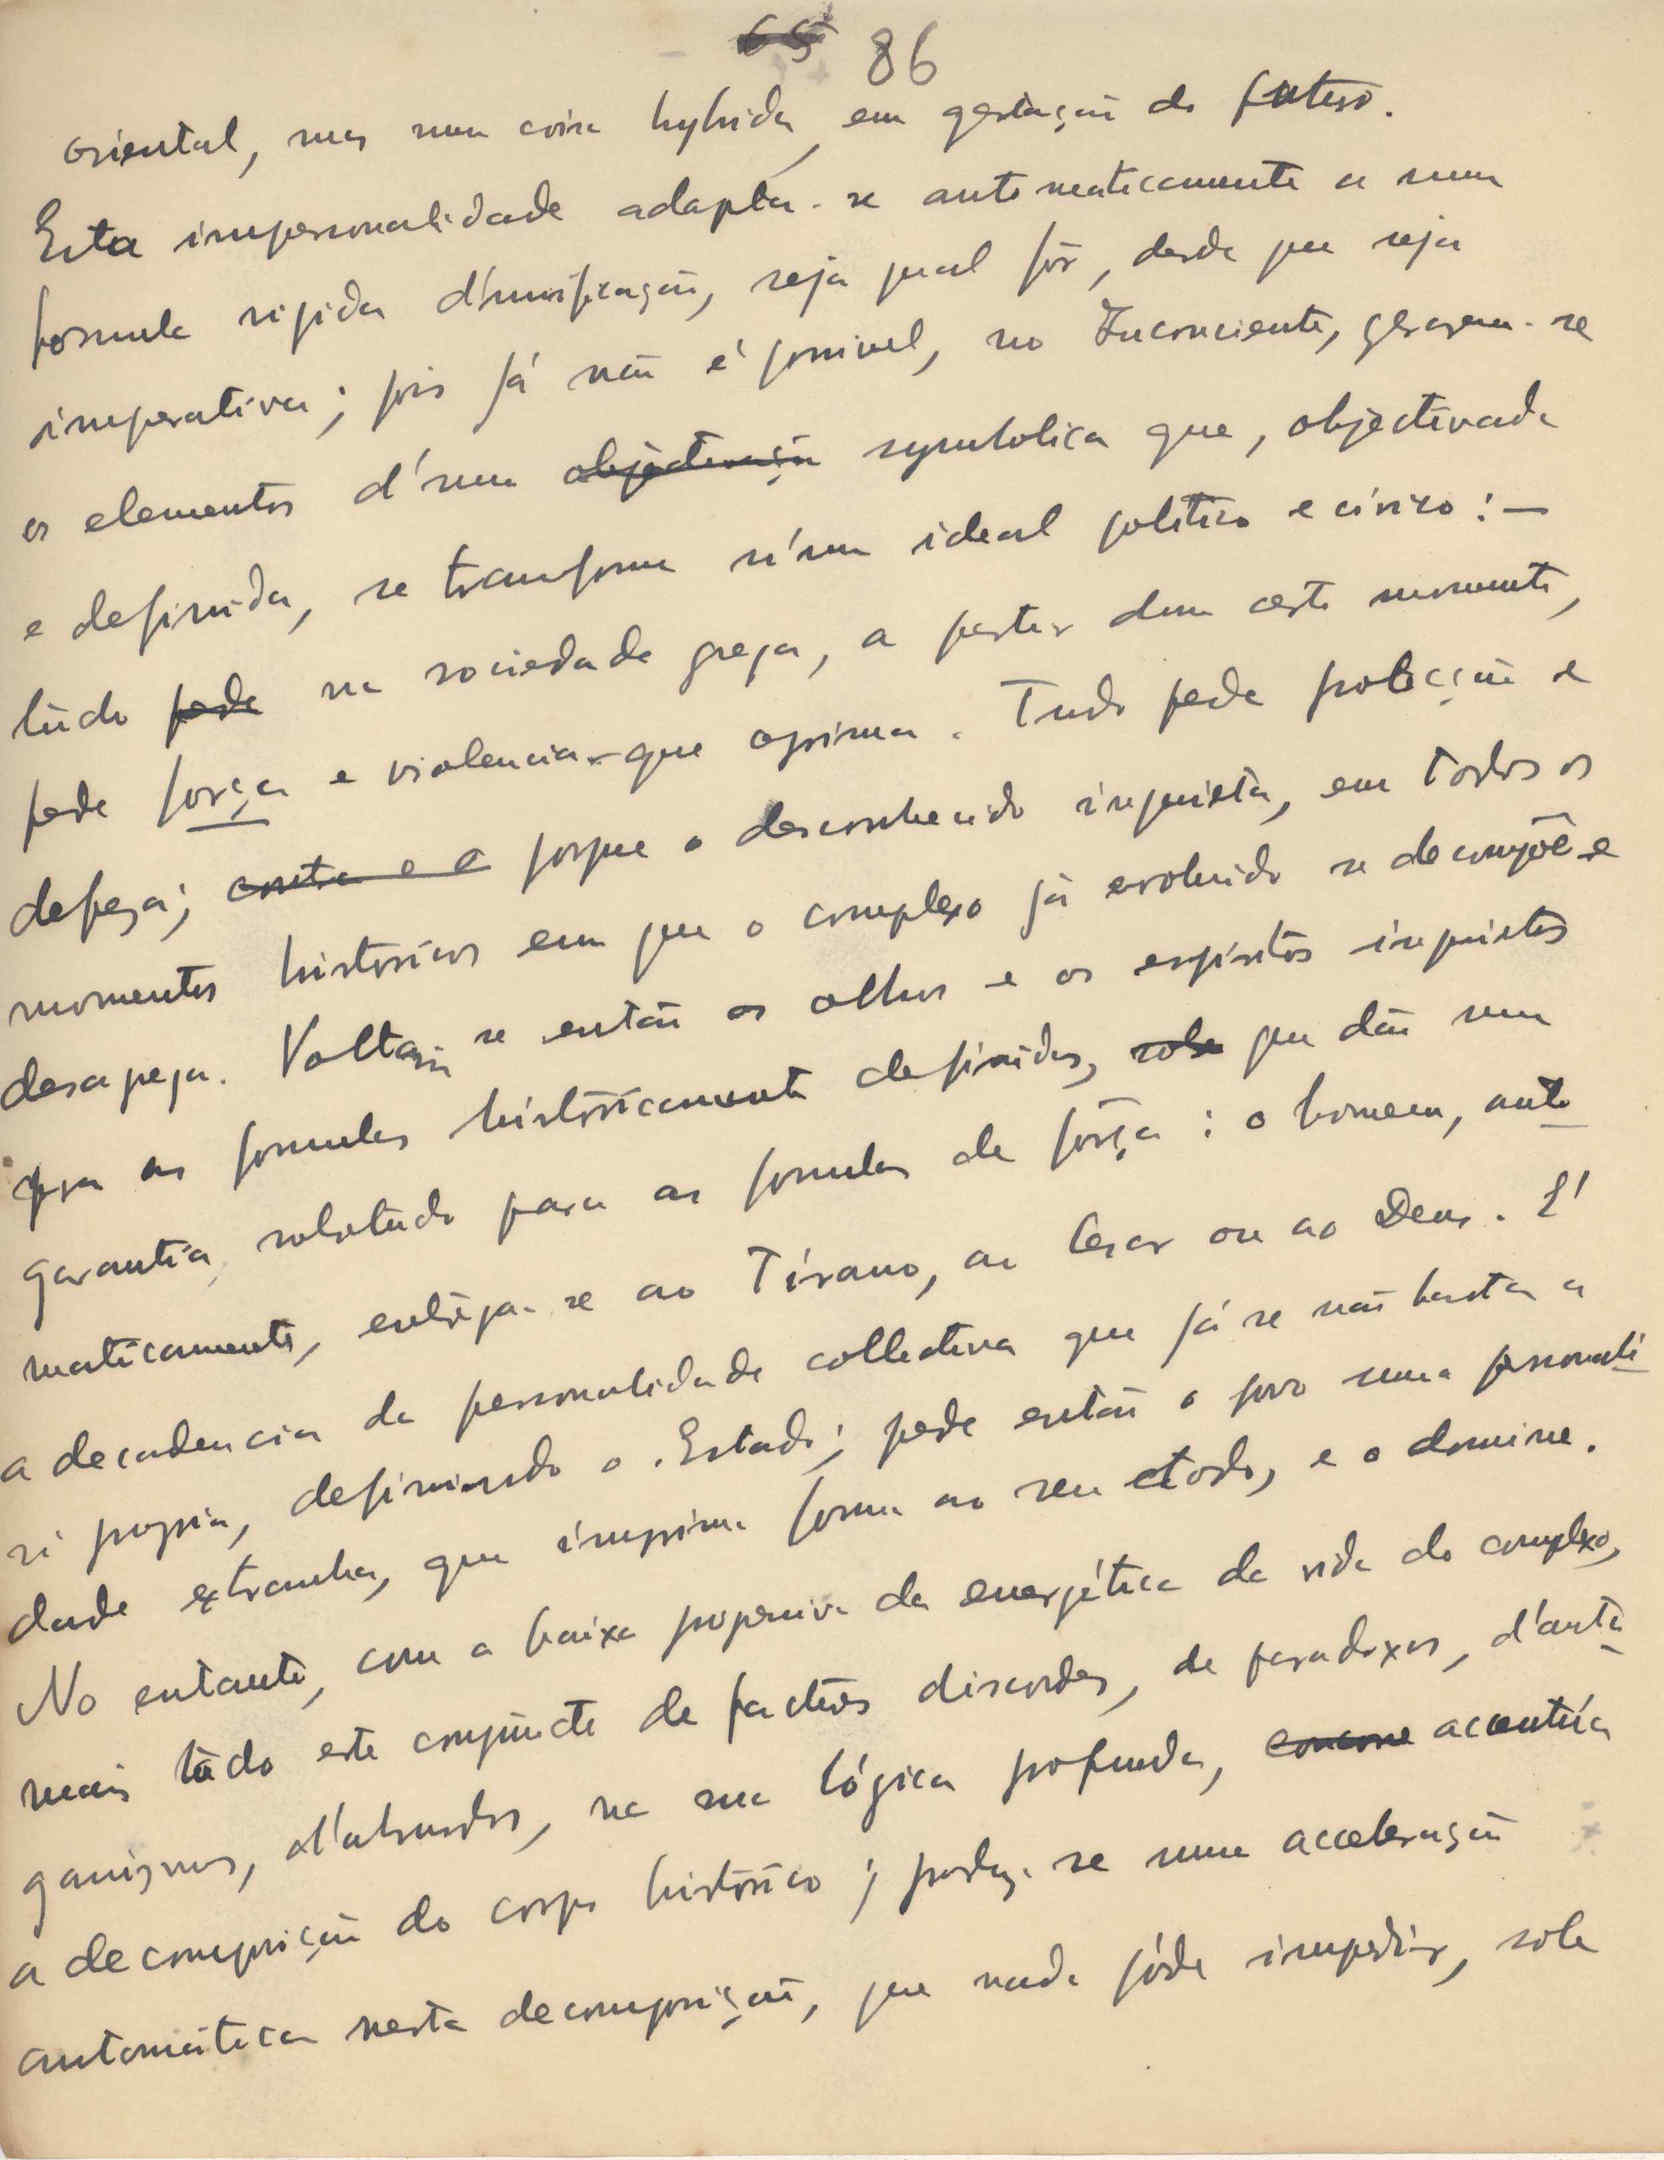 65 86
oriental, mas numa coisa hybrida, em gestação do futuro.
Esta impersonalidade adapta-se automaticamente a uma
formula rigida d'unificação, seja qual fôr, desde que seja
imperativa; pois já não é possivel, no Inconsciente, gerarem-se
os elementos d'uma objectivação symbolica que, objectivada
e definida, se transforme n'um ideal politico e civico: —
tudo pede na sociedade grega, a partir dum certo momento,
pede força e violencia que oprima. Tudo pede protecção e
defeza; contra e o porque o desconhecido inquieta, em todos os
momentos historicos em que o complexo já evoluido se decompõe e
desagrega. Voltam se então os olhos e os espiritos inquietos
pra as formulas historicamente definidas, sobr que dão uma
garantia, sobretudo para as formulas de força: o homem, auto
maticamente, entrega-se ao Tirano, ao Cesar ou ao Deus. É
a decadencia da personalidade collectiva que já se não basta a
si propria, definindo o Estado; pede então o povo uma personali
dade extranha, que imprima forma ao seu todo, e o domine.
No entanto, com a baixa progressiva da energética da vida do complexo,
mais tudo este conjuncto de factores discordes, de paradoxos, d'anta
ganismos, d'absurdos, na sua lógica profunda, accentúa
a decomposição do corpo historico; produz-se uma acceleração
automática nesta decomposição, que nada póde impedir, sob